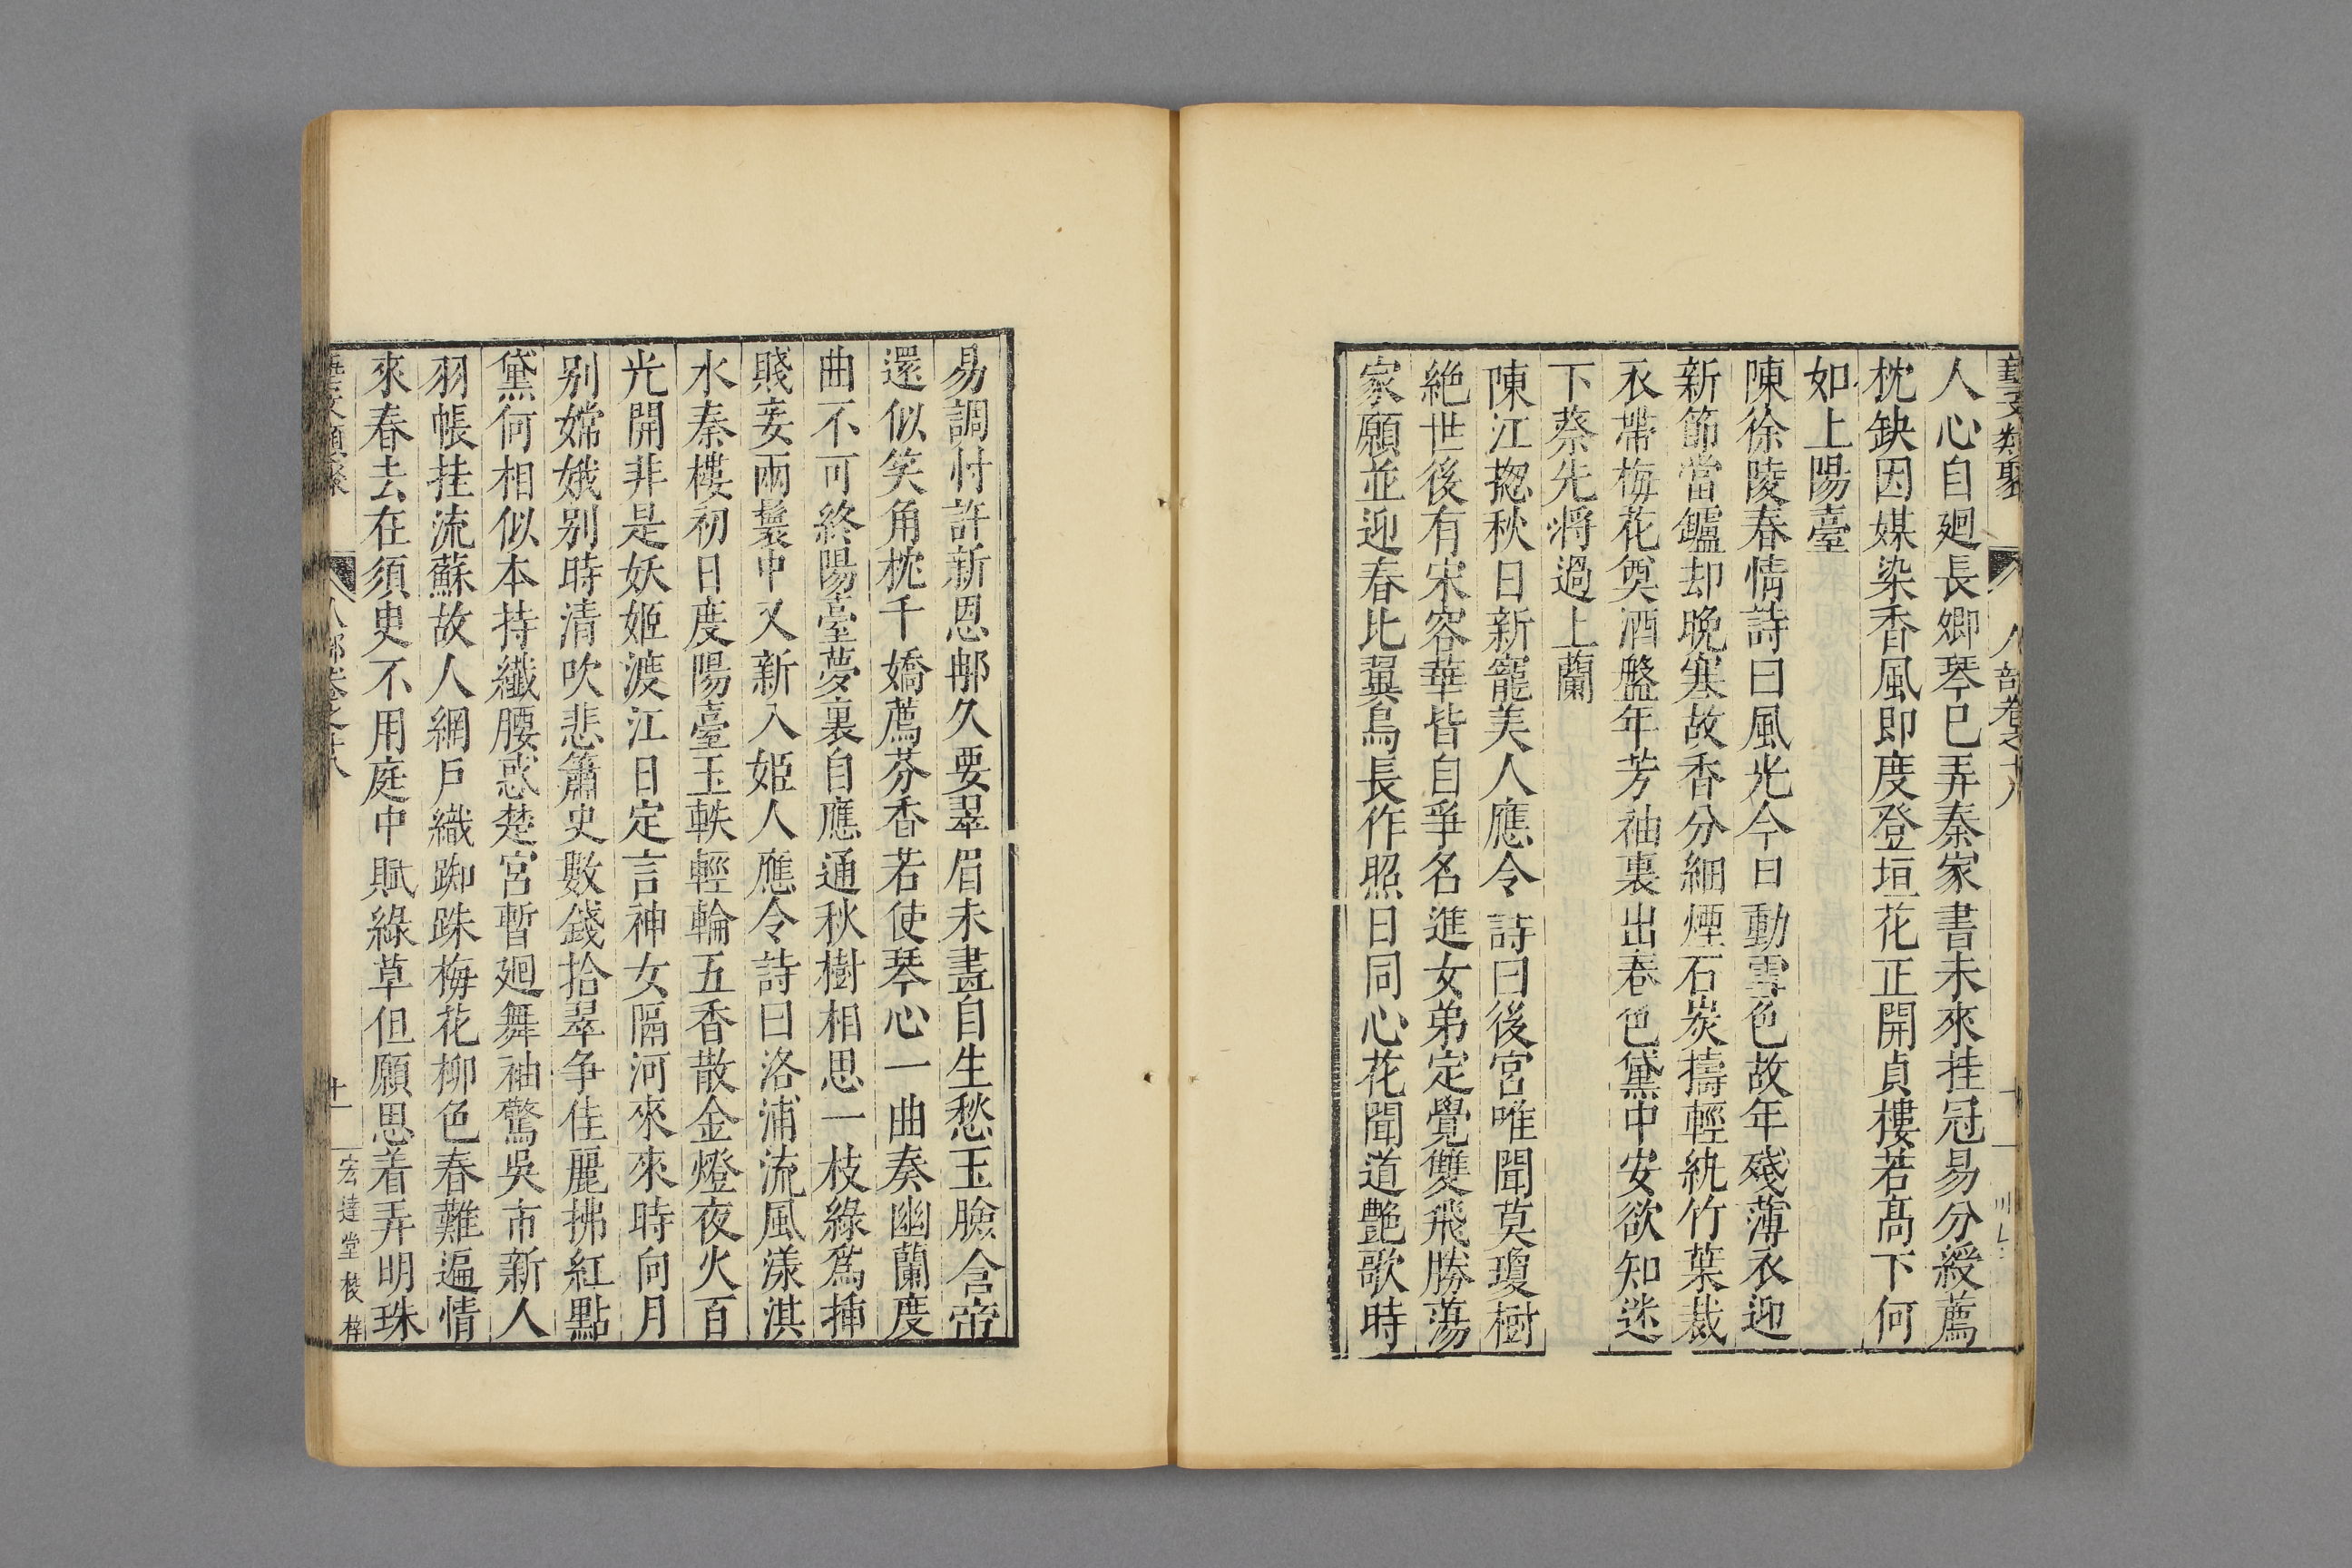 藝文類聚 人部卷之十八 十一
人心自廻長卿琴已弄秦家書未來挂冠易分綬薦
枕缺因媒染香風即度登垣花正開貞樓若高下何
如上陽臺
陳徐陵春情詩曰風光今日動雪色故年殘薄衣迎
新節當鑪却晚寒故香分細煙石炭擣輕紈竹葉裁
衣帶梅花奠酒盤年芳袖裏出春色黛中安欲知迷
下蔡先將過上蘭
陳江揔秋日新寵美人應令詩曰後宮唯聞莫瓊樹
絶世後有宋容華皆自爭名進女弟定覺雙飛勝蕩
家願並迎春比翼鳥長作照日同心花聞道艶歌時
易調忖許新恩郍久要翠眉未畫自生愁玉臉含啼
還似笑角枕千嬌薦芬香若使琴心一曲奏幽蘭度
曲不可終陽臺夢裏自應通秋樹相思一枝綠爲揷
賤妾兩鬟中又新入姬人應令詩曰洛浦流風漾淇
水秦樓初日度陽臺玉軼輕輪五香散金燈夜火百
光開非是妖姬渡江日定言神女隔河來來時向月
别嫦娥别時清吹悲簫史數錢拾翠争佳麗拂紅點
黛何相似本持纖腰惑楚宮暫廻舞袖驚吳市新人
羽帳挂流蘇故人網戸織踟跦梅花柳色春難遍情
來春去在須臾不用庭中賦綠草但願思着弄明珠
藝文類聚 人部卷之十八 十一 宏達堂